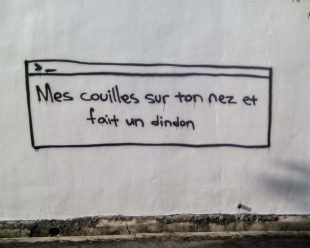 >_
Mes couilles sur ton nez et
fait un dindon